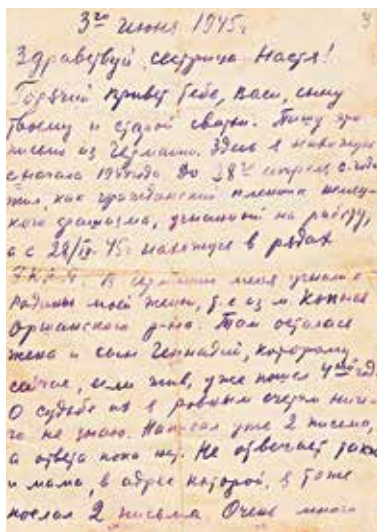 3
3го июня 1945г.
Здравствуй, сестрица Настя!
Горячий привет Тебе, Васи, сыну
твоему и старой сватьи. Пишу это
письмо из Германии. Здесь я нахожусь
с начала 1944 года. До 28го апреля с. года
жил, как гражданский пленник немец-
кого фашизма, угнанный на работу,
а с 28/IV-45г. нахожусь в рядах
Р.К.К.А. В Германию меня угнали с
Родины моей жены, т.е. из м. Копысь
Оршанского р-на. Там осталася
жена и сын Геннадий, которому
сейчас, если жив, уже пошел 4ый год.
О судьбе их я ровным счетом ниче-
го не знаю. Написал уже 2 письма,
а ответа пока нет. Не отвечает также
и мама, в адрес которой, я тоже
послал 2 письма. Очень много